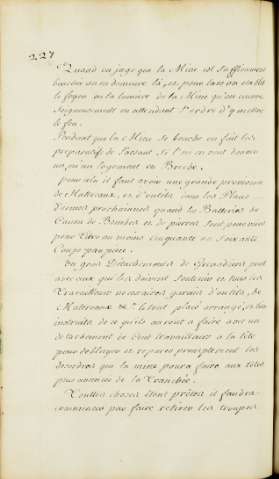 227
Quand on juge que la Mine est suffisamment
bourée on en demeure là, et pour lors on etablit
le foyer ou la lumiere de la Mine qu'on couvre
soigneusement en attendant l'ordre d'y mettre
le feu.
Pendant que la Mine se bouche on fait les
preparatifs de l'assaut si l'on en veut donner
un, ou un logement en Breche.
pour cela il faut avoir une grande provision
de Materaux, et d'outils, sous les Places
d'armes prochaines, quand les Batteries de
Canon de Bombes et de pierres sont pourvues
pour tirer au moins cinquante ou soixante
Coups par piece.
Un gros Detachement de Grenadiers
avec ceux qui les doivent soutenir et tous les
Travailleurs necessaires garnis d'outils, de
Materaux &c. le tout placé arrangé, et bien
instruits de ce qu'ils auront a faire avec un
detachement de Cent travailleurs a la tête
pour deblayer et reparer promptement les
desordres que la mine pourra faire aux têtes
plus avancées de la Tranchée.
Touttes choses étant prêtes il faudra
commencer par faire retirer les troupes